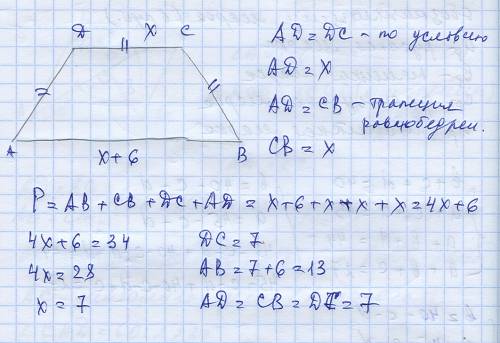 D x C
AD = DC – по условию
AD = x
7
AD = CB – трапеция
равнобедрен.
CB = x
A x + 6 B
P = AB + CB + DC + AD = x + 6 + x + x + x = 4x + 6
4x + 6 = 34
DC = 7
4x = 28
AB = 7 + 6 = 13
x = 7
AD = CB = DC = 7